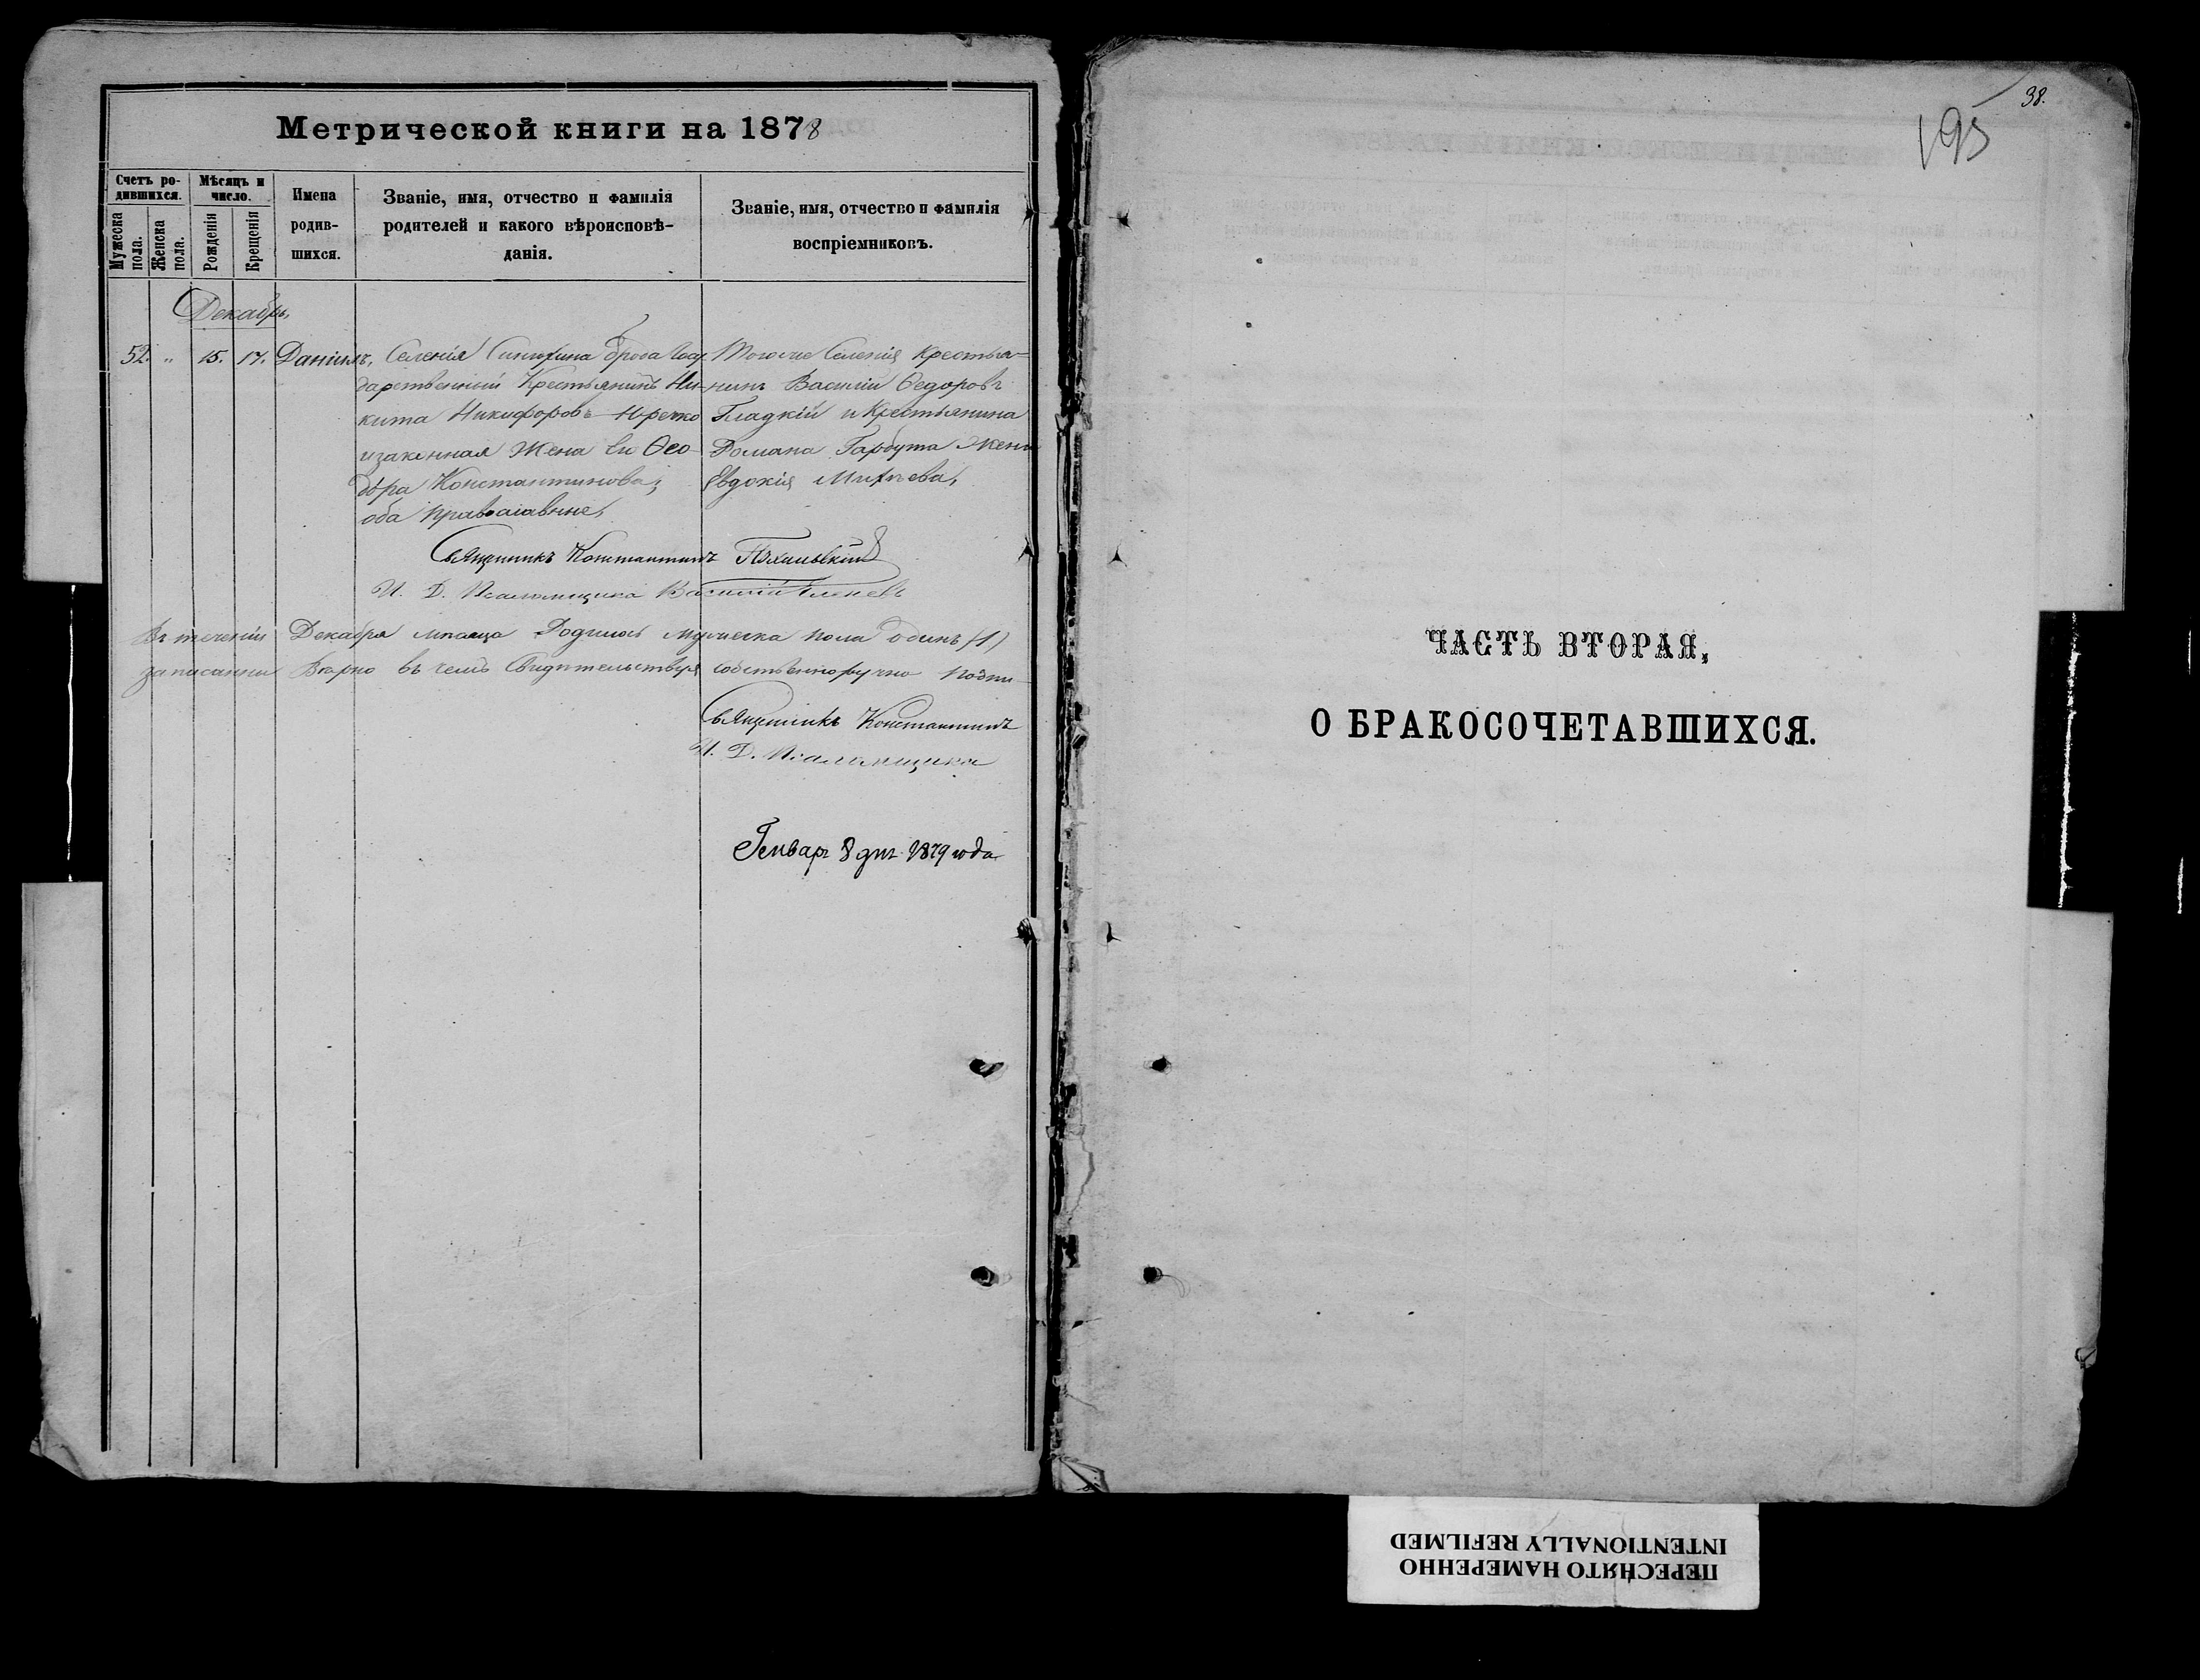 Метрической книги на 1878
Счетъ ро-
дившихся.
Мѣсяцъ и
число.
Мужеска
пола.
Женска
пола.
Рожденія
Крещенія
Имена
родив-
шихся.
Званіе, имя, отчество и фамилія
родителей и какого вѣроисповѣ-
данія.
Званіе, имя, отчество и фамилія
воспріемниковъ.
Декабрь,
52. " 15. 17. Даніилъ,
Селенія Синюхина брода Госу
дарственный Крестьянинъ Ни-
кита Никифоровъ
изаконная Жена Его Ѳео-
дора Константинова;
оба православные,
Тогоже Селенія Крестья-
нинъ Василій Ѳедоровъ
Гладкій и Крестьянина
Романа Гарбуза Жена
Евдокія Михѣева,
Священникъ Константинъ
И. Д. Псаломщика Василій
Въ теченіи Декабря мѣсяца Родилось мужеска пола одинъ (1)
записанны Вѣрно въ чемъ Свидѣтельствуя собственноручно подпи
Священникъ Константинъ
И. Д. Псаломщика
Генварь 8 дня 1879 года
38.
195
ЧАСТЬ ВТОРАЯ,
О БРАКОСОЧЕТАВШИХСЯ.
ПЕРЕСНЯТО НАМЕРЕННО
INTENTIONALLY REFILMED